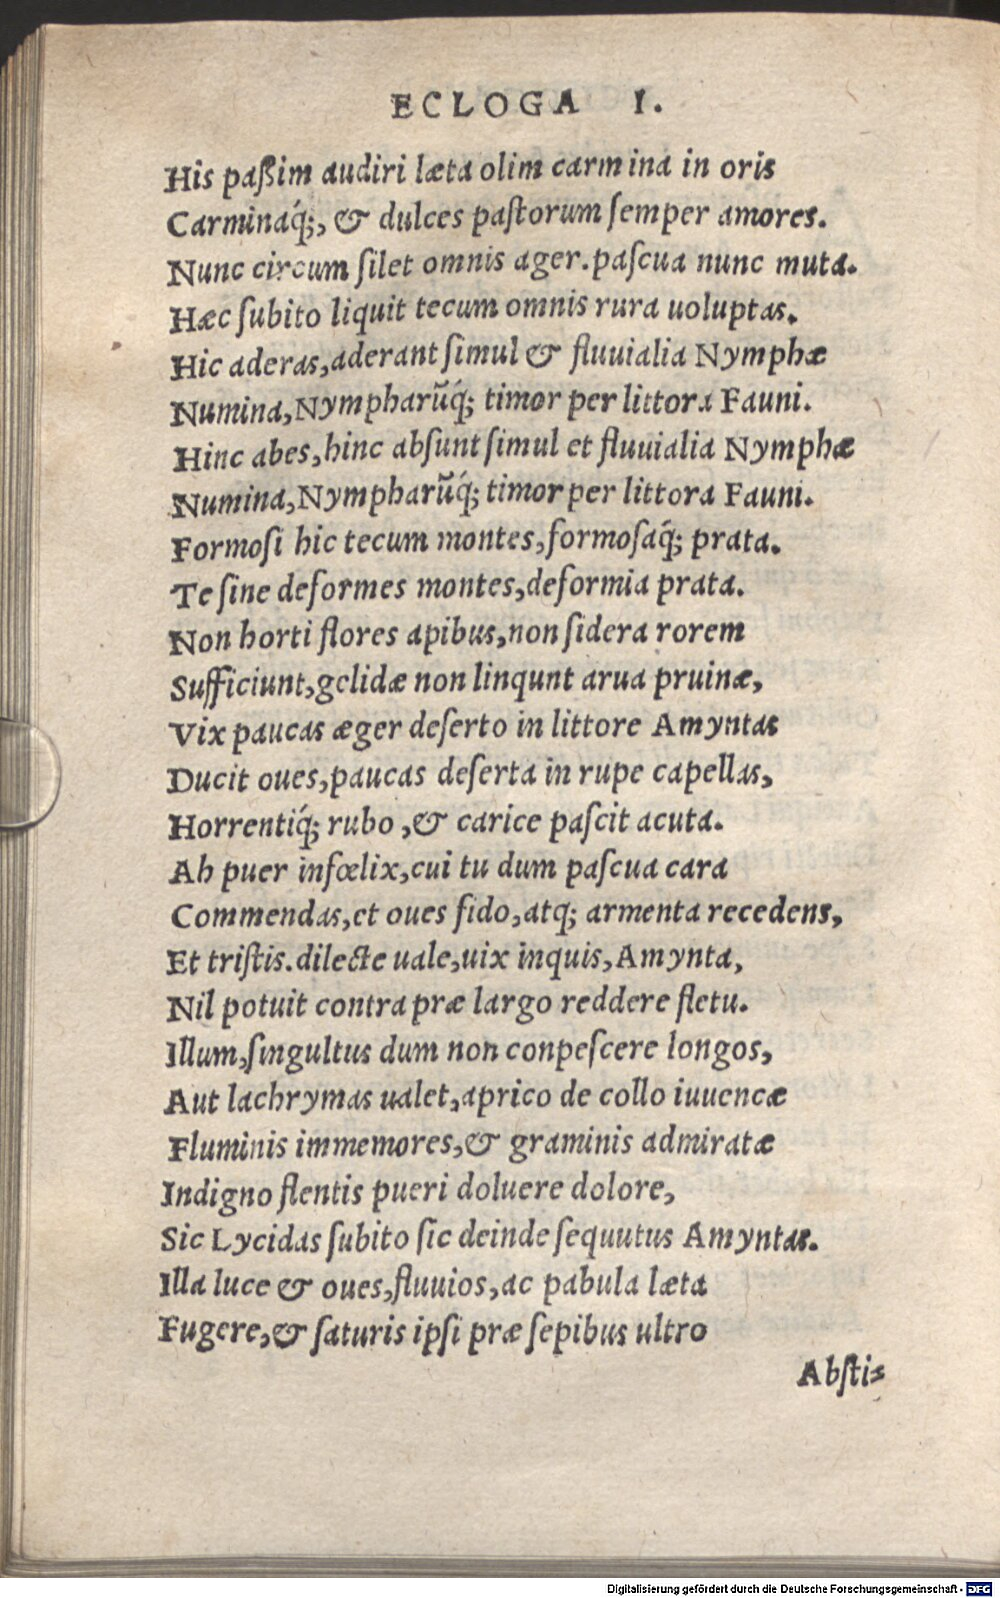 ECLOGA I.
His paßim audiri læta olim carmina in oris
Carminaq́;, & dulces paſtorum ſemper amores.
Nunc circum ſilet omnis ager.paſcua nunc muta.
Hæc ſubito liquit tecum omnis rura uoluptas.
Hic aderas,aderant ſimul & fluuialia Nymphæ
Numina,Nympharũq́; timor per littora Fauni.
Hinc abes,hinc abſunt ſimul et fluuialia Nymphæ
Numina,Nympharũq́; timor per littora Fauni.
Formoſi hic tecum montes,formoſaq́; prata.
Te ſine deformes montes,deformia prata.
Non horti flores apibus,non ſidera rorem
Sufficiunt,gelidæ non linqunt arua pruinæ,
Vix paucas æger deſerto in littore Amyntas
Ducit oues,paucas deſerta in rupe capellas,
Horrentiq́; rubo ,& carice paſcit acuta.
Ah puer infœlix,cui tu dum paſcua cara
Commendas,et oues fido,atq; armenta recedens,
Et triſtis.dilecte uale,uix inquis,Amynta,
Nil potuit contra præ largo reddere fletu.
Illum,ſingultus dum non conpeſcere longos,
Aut lachrymas ualet,aprico de collo iuuencæ
Fluminis immemores,& graminis admiratæ
Indigno flentis pueri doluere dolore,
Sic Lycidas ſubito ſic deinde ſequutus Amyntas.
Illa luce & oues,fluuios,ac pabula læta
Fugere,& ſaturis ipſi præ ſepibus ultro
Abſti=
Digitalisierung gefördert durch die Deutsche Forschungsgemeinschaft - DFG